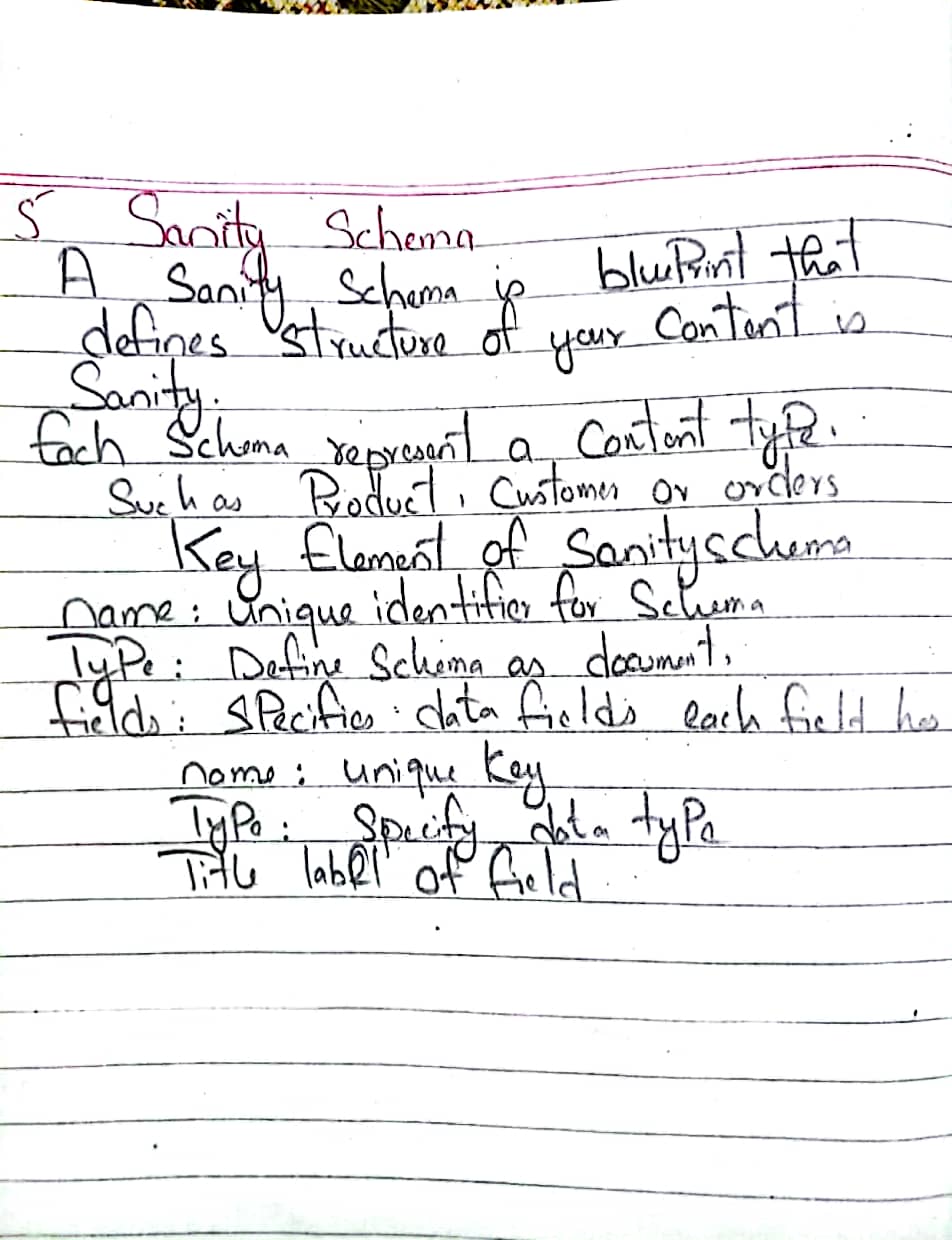 5 Sanity Schema
A Sanity Schema is bluePrint that
defines structure of your Content is
Sanity.
Each Schema represent a Content type.
Such as Product, Customer or orders
Key Element of Sanityschema
name: Unique identifier for Schema
TyPe: Define Schema as document,
fields: SPecifies data fields each field has
name: unique Key
TyPe: Specify data tyPe
Title label of field